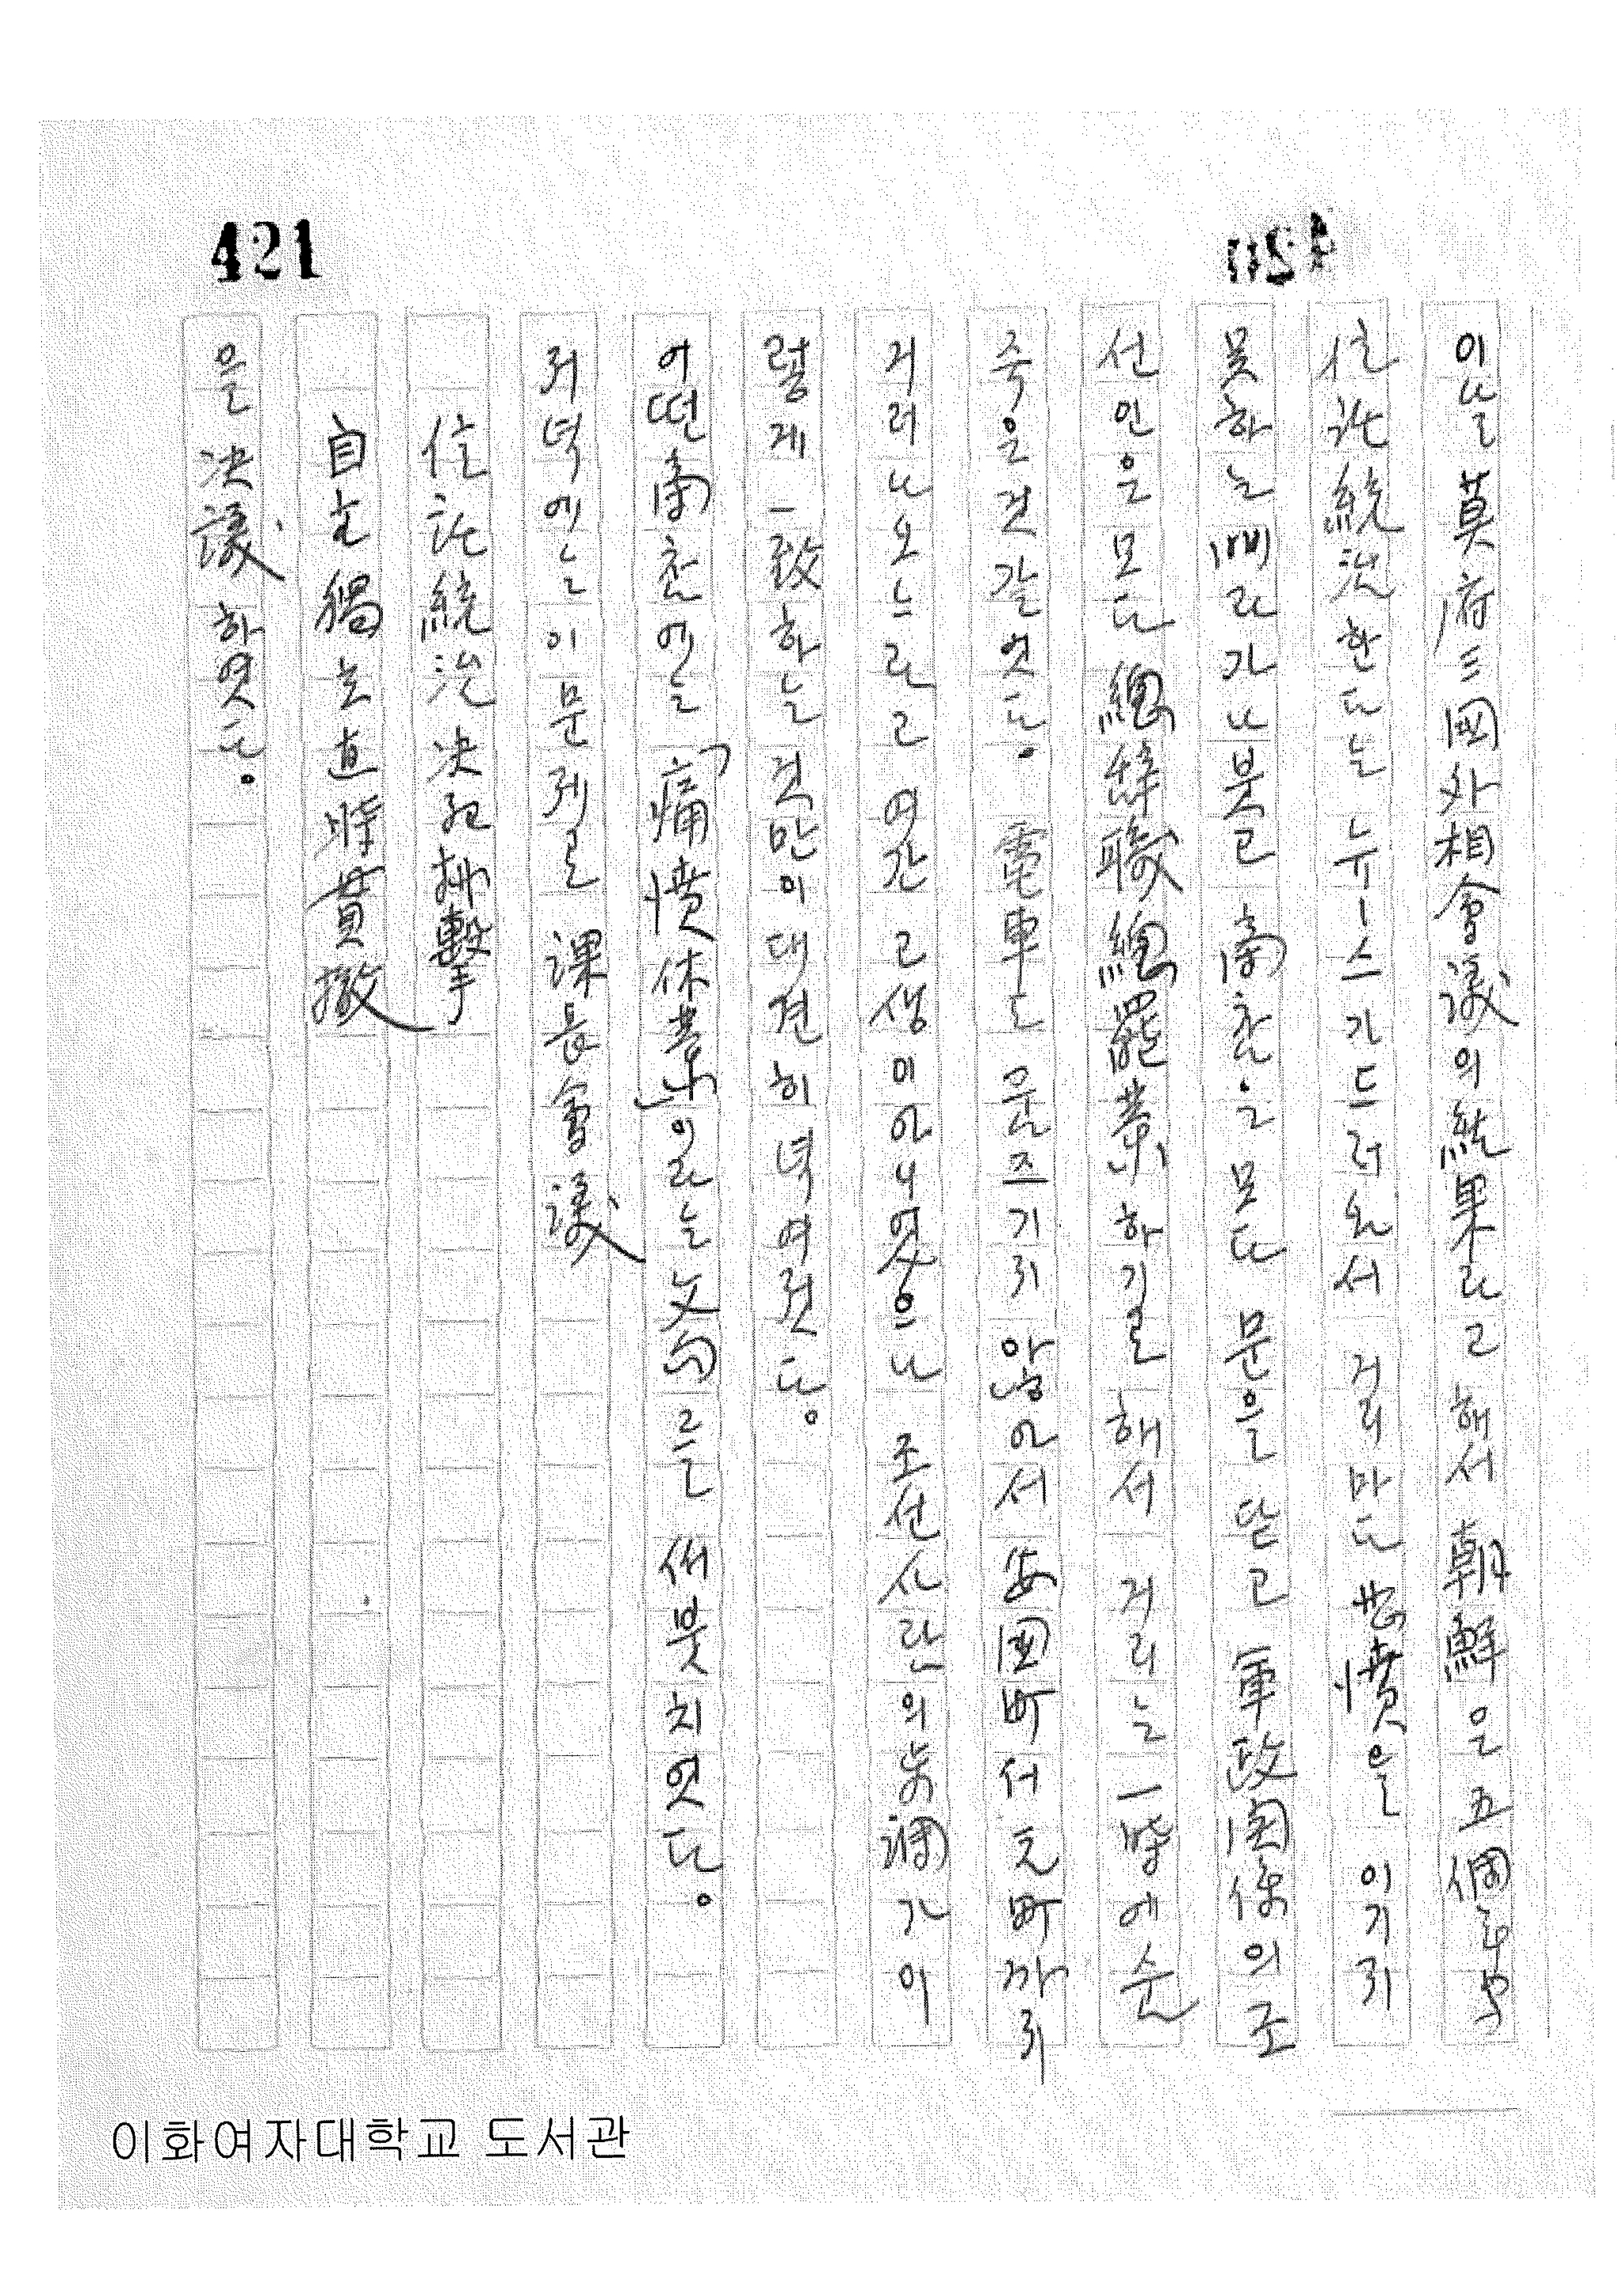 421
이날 莫府三國外相會議의 結果라고 해서 朝鮮은 五個年
信託統治한다는 뉴ー스가 드러와서 거리마다 悲憤을 이기지
못하는 때라 가나붓고 商店은 모다 문을 닫고 軍政関係의 조
선인은 모다 總辞職 總罷業하기로 해서 거리는 一瞬에 순
죽은 것 갈엇다. 電車도 움즈기지 않아서 安国町서 元町까지
거러나오느라고 여간 고생이 아니엿으나 조선사람의 步調가 이
렇게 一致하는 것만이 대견히 녁여젓다。
어떤 商店에는 「痛憤休業」이라는 文句를 써붓치엿다。
저녁에는 이 문제로 課長會議
信託統治決死排擊
自主獨立直時貫徹
을 決議하엿다。
이화여자대학교 도서관